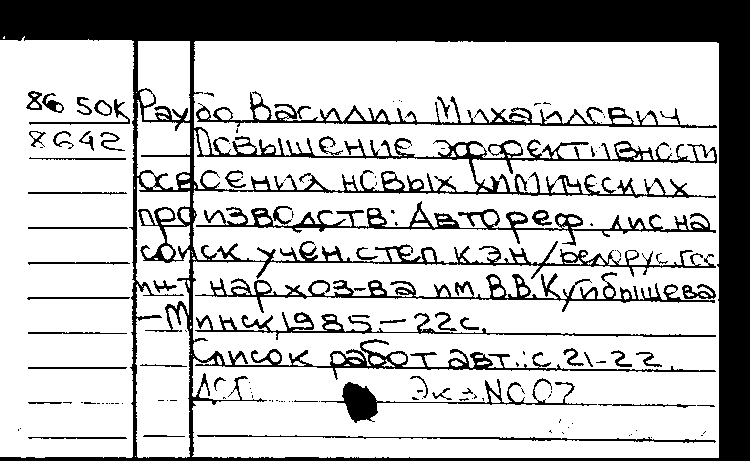 86 50К Раубо, Василий Михайлович
8642 Повышение эффективности
освоения новых химических
производств: Автореф. дис на
соиск. учен. степ. к.э.н./Белорус. гос
ин-т нар. хоз-ва им. В.В. Куйбышева
–Минск, 1985.–22с.
Список работ авт.: с. 21-22.
ДСП. Экз. N007